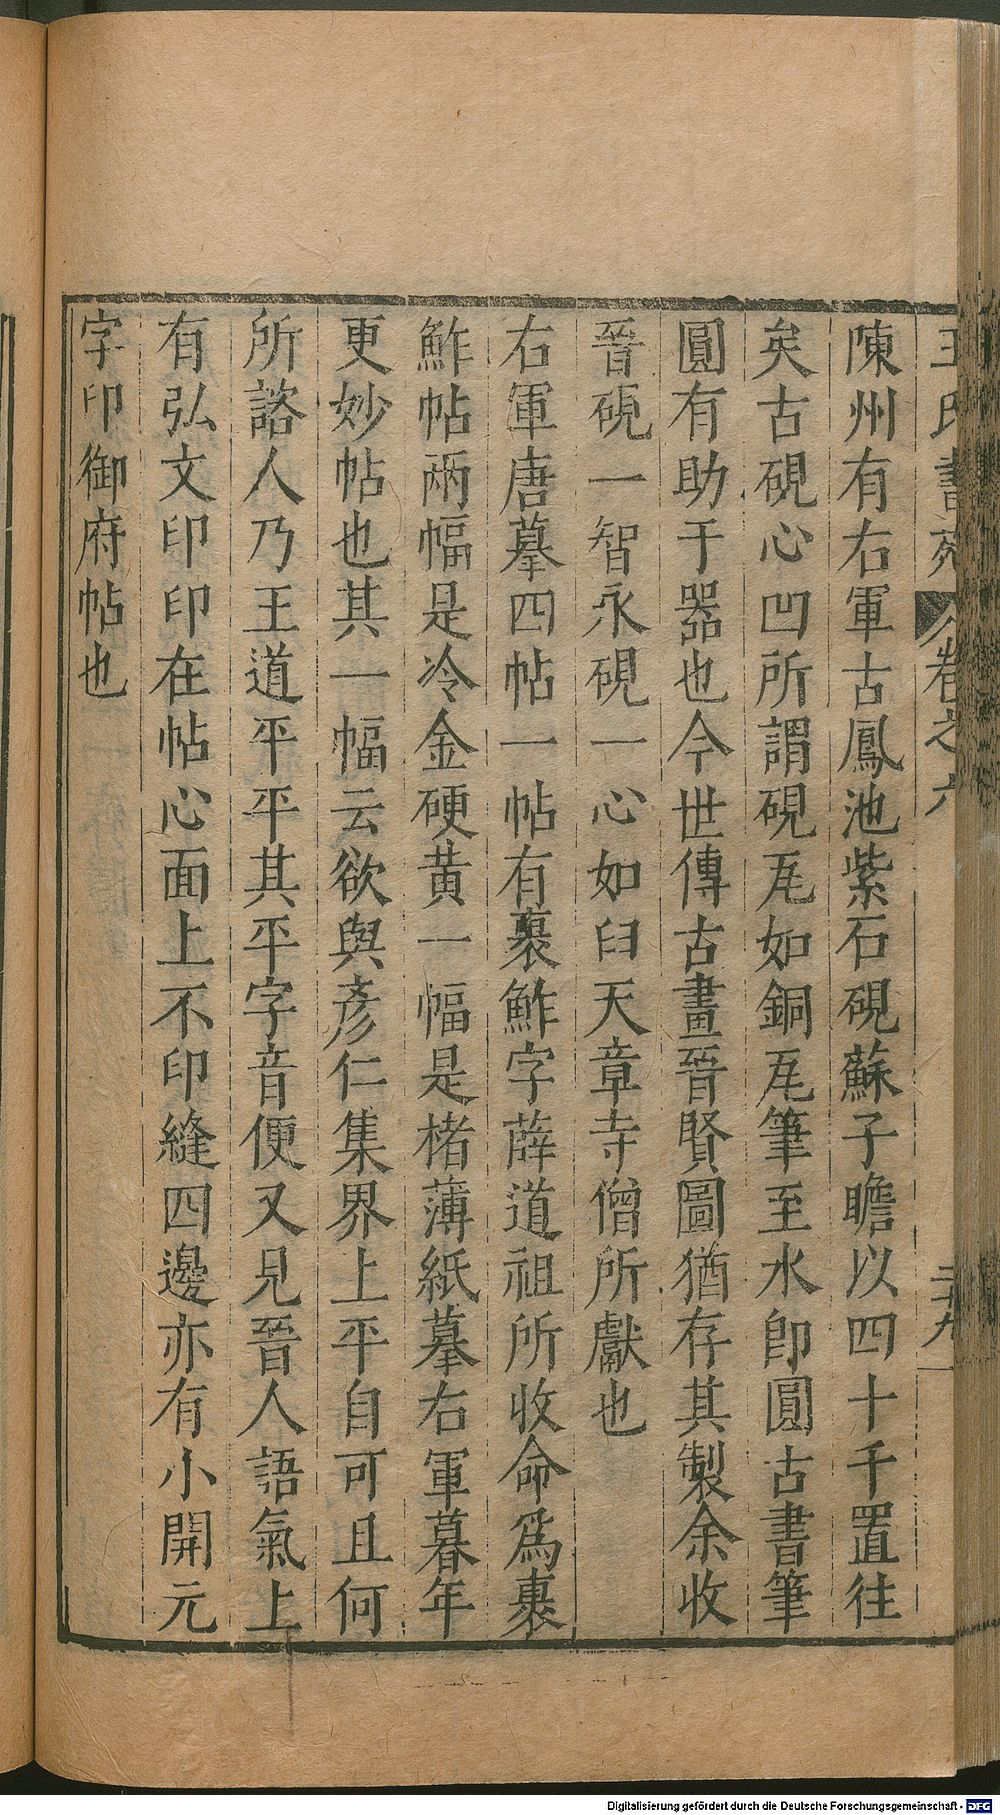 王氏書苑 卷之六 二十九
陳州有右軍古鳳池紫石硯蘇子瞻以四十千置往
矣古硯心凹所謂硯瓦如銅瓦筆至水即圓古書筆
圓有助于器也今世傳古畫晉賢圖猶存其製余收
晉硯一智永硯一心如臼天章寺僧所獻也
右軍唐摹四帖一帖有裹鮓字薛道祖所收命爲裹
鮓帖兩幅是冷金硬黃一幅是楮薄紙摹右軍暮年
更妙帖也其一幅云欲與彥仁集界上平自可且何
所諮人乃王道平平其平字音便又見晉人語氣上
有弘文印印在帖心面上不印縫四邊亦有小開元
字印御府帖也
Digitalisierung gefördert durch die Deutsche Forschungsgemeinschaft - DFG